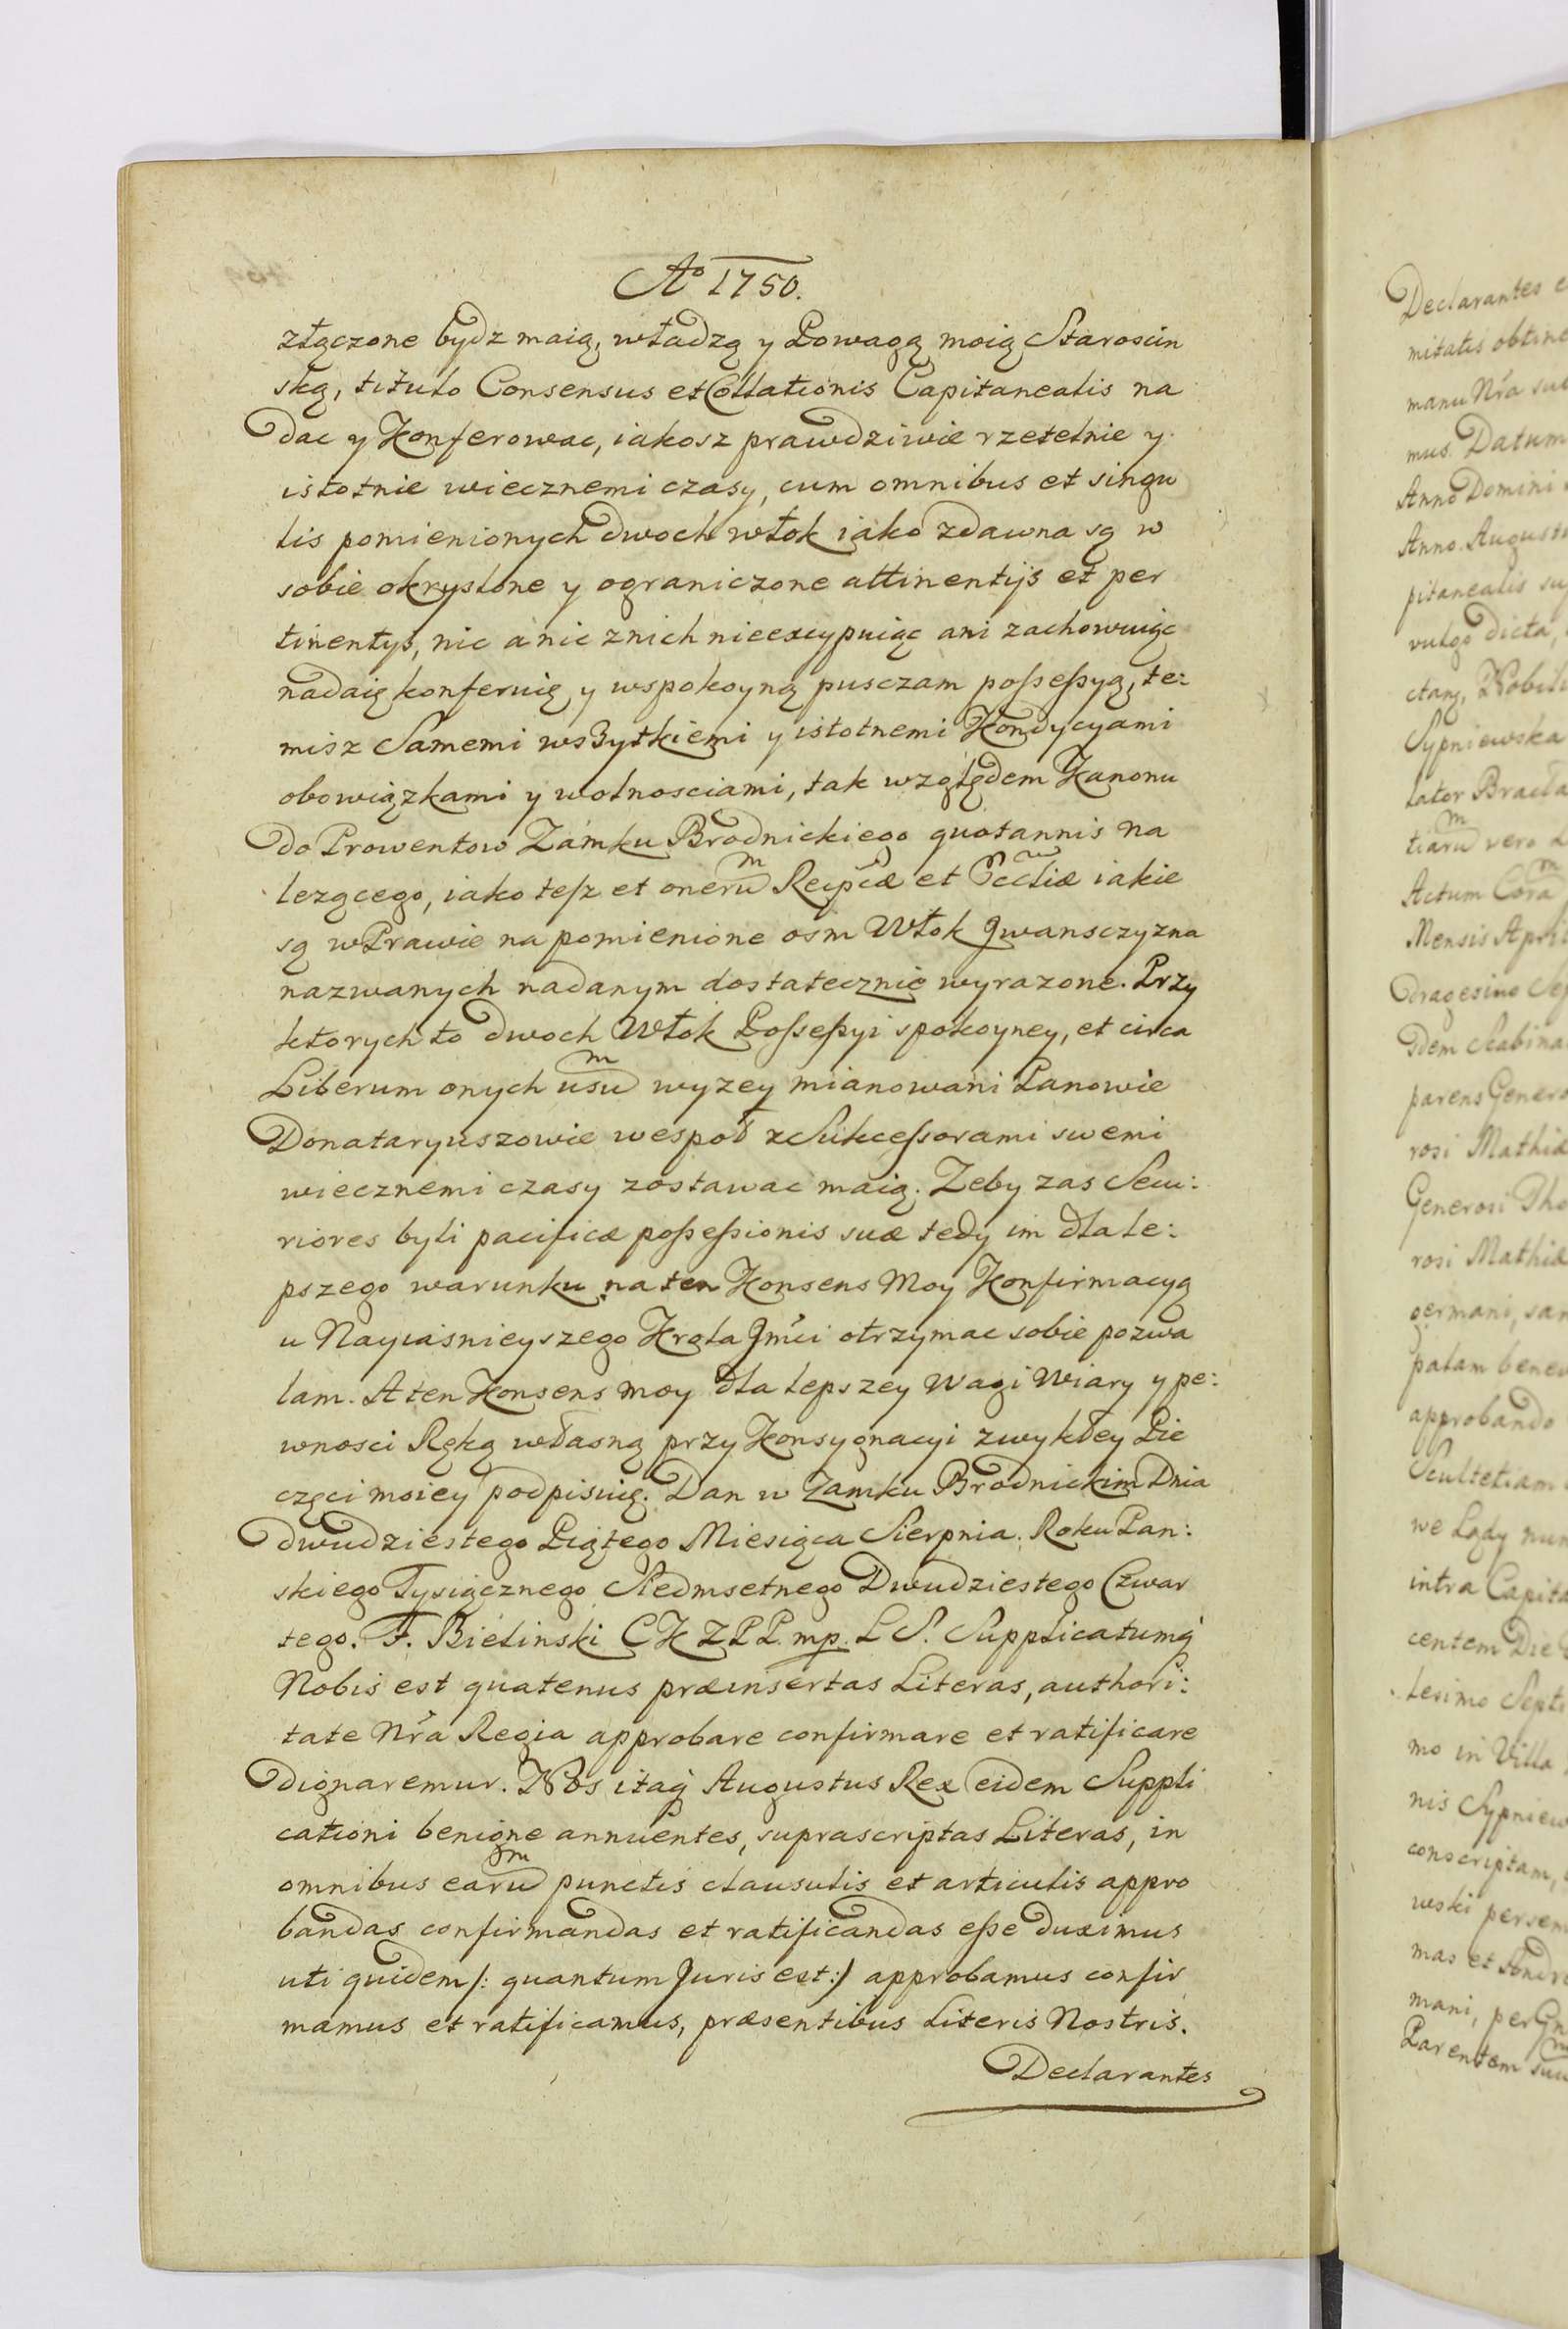 Aº 1750.
złączone bydz maią, władzą y Powagą moią Starosciń
ską, titulo Consensus et Collationis Capitanealis na
dac y Konferowac, iakosz prawdziwie rzetelnie y
istotnie wiecznemi czasy, cum omnibus et singu
lis pomienionych dwoch włok iako zdawna są w
sobie okryslone y ograniczone attinentijs et per
tinentys, nic a nic znich nieexcypuiąc ani zachowuiąc
nadaię konferuię y wspokoyną pusczam poſseſsyą, te:
misz Samemi wszytkiemi y istotnemi Kondycyami
obowiązkami y wolnosciami, tak względem Kanonu
do Prowentow Zámku Brodnickiego quotannis na
lezącego, iako teſz et onerum Reipcæ et Ecctiæ iakie
są w Prawie na pomienione osm Włok Jwansczyzna
nazwanych nadanym dostatecznie wyrazone. Przy
ktorych to dwoch Włok Poſseſsyi spokoyney, et circa
Liberum onych usum wyzey mianowani Panowie
Donataryuszowie wespoł z Sukceſsorami swemi
wiecznemi czasy zostawac maią. Zeby zas Secu:
riores byli pacificæ poſseſsionis suæ tedy im dla le:
pszego warunku na ten Konsens Moy Konfirmacyą
u Nayiasnieyszego Krola Jmci otrzymac sobie pozwa
lam. A ten Konsens moy dla lepszey Wagi Wiary y pe:
wnosci Ręką własną przy Konsygnacyi zwykłey Pie
częci moiey podpisuię. Dan w Zamku Brodnickim Dnia
dwudziestego Piątego Miesiąca Sierpnia. Roku Pan:
skiego Tysiącznego Siedmsetnego Dwudziestego Czwar
tego. F. Bielinski C K Z P P. mp. L S. Supplicatumq
Nobis est quatenus præinsertas Literas, authori:
tate Nra Regia approbare confirmare et ratificare
dignaremur. Nos itaq Augustus Rex eidem Suppli
cationi benigne annuentes, suprascriptas Literas, in
omnibus earum punctis clausulis et articulis appro
bandas confirmandas et ratificandas eſse duximus
uti quidem /: quantum Juris est :/ approbamus confir
mamus et ratificamus, præsentibus Literis Nostris.
Declarantes
Declarantes
mitatis
manu Nra
mus. Datum
Anno Domini
Anno Augusti
pitanealis
vulgo dicta,
Sypniewska
lator
tiarum vero
Actum Coram
Mensis
dragesimo
parens
rosi Mathiæ
Generosi
rosi Mathiæ
germani,
palam
approbando
Scultetiam
we Lądy
intra
centem Die
lesimo
mo in Villa
nis
conscriptam,
wski
mas et
mani, per
Parentem